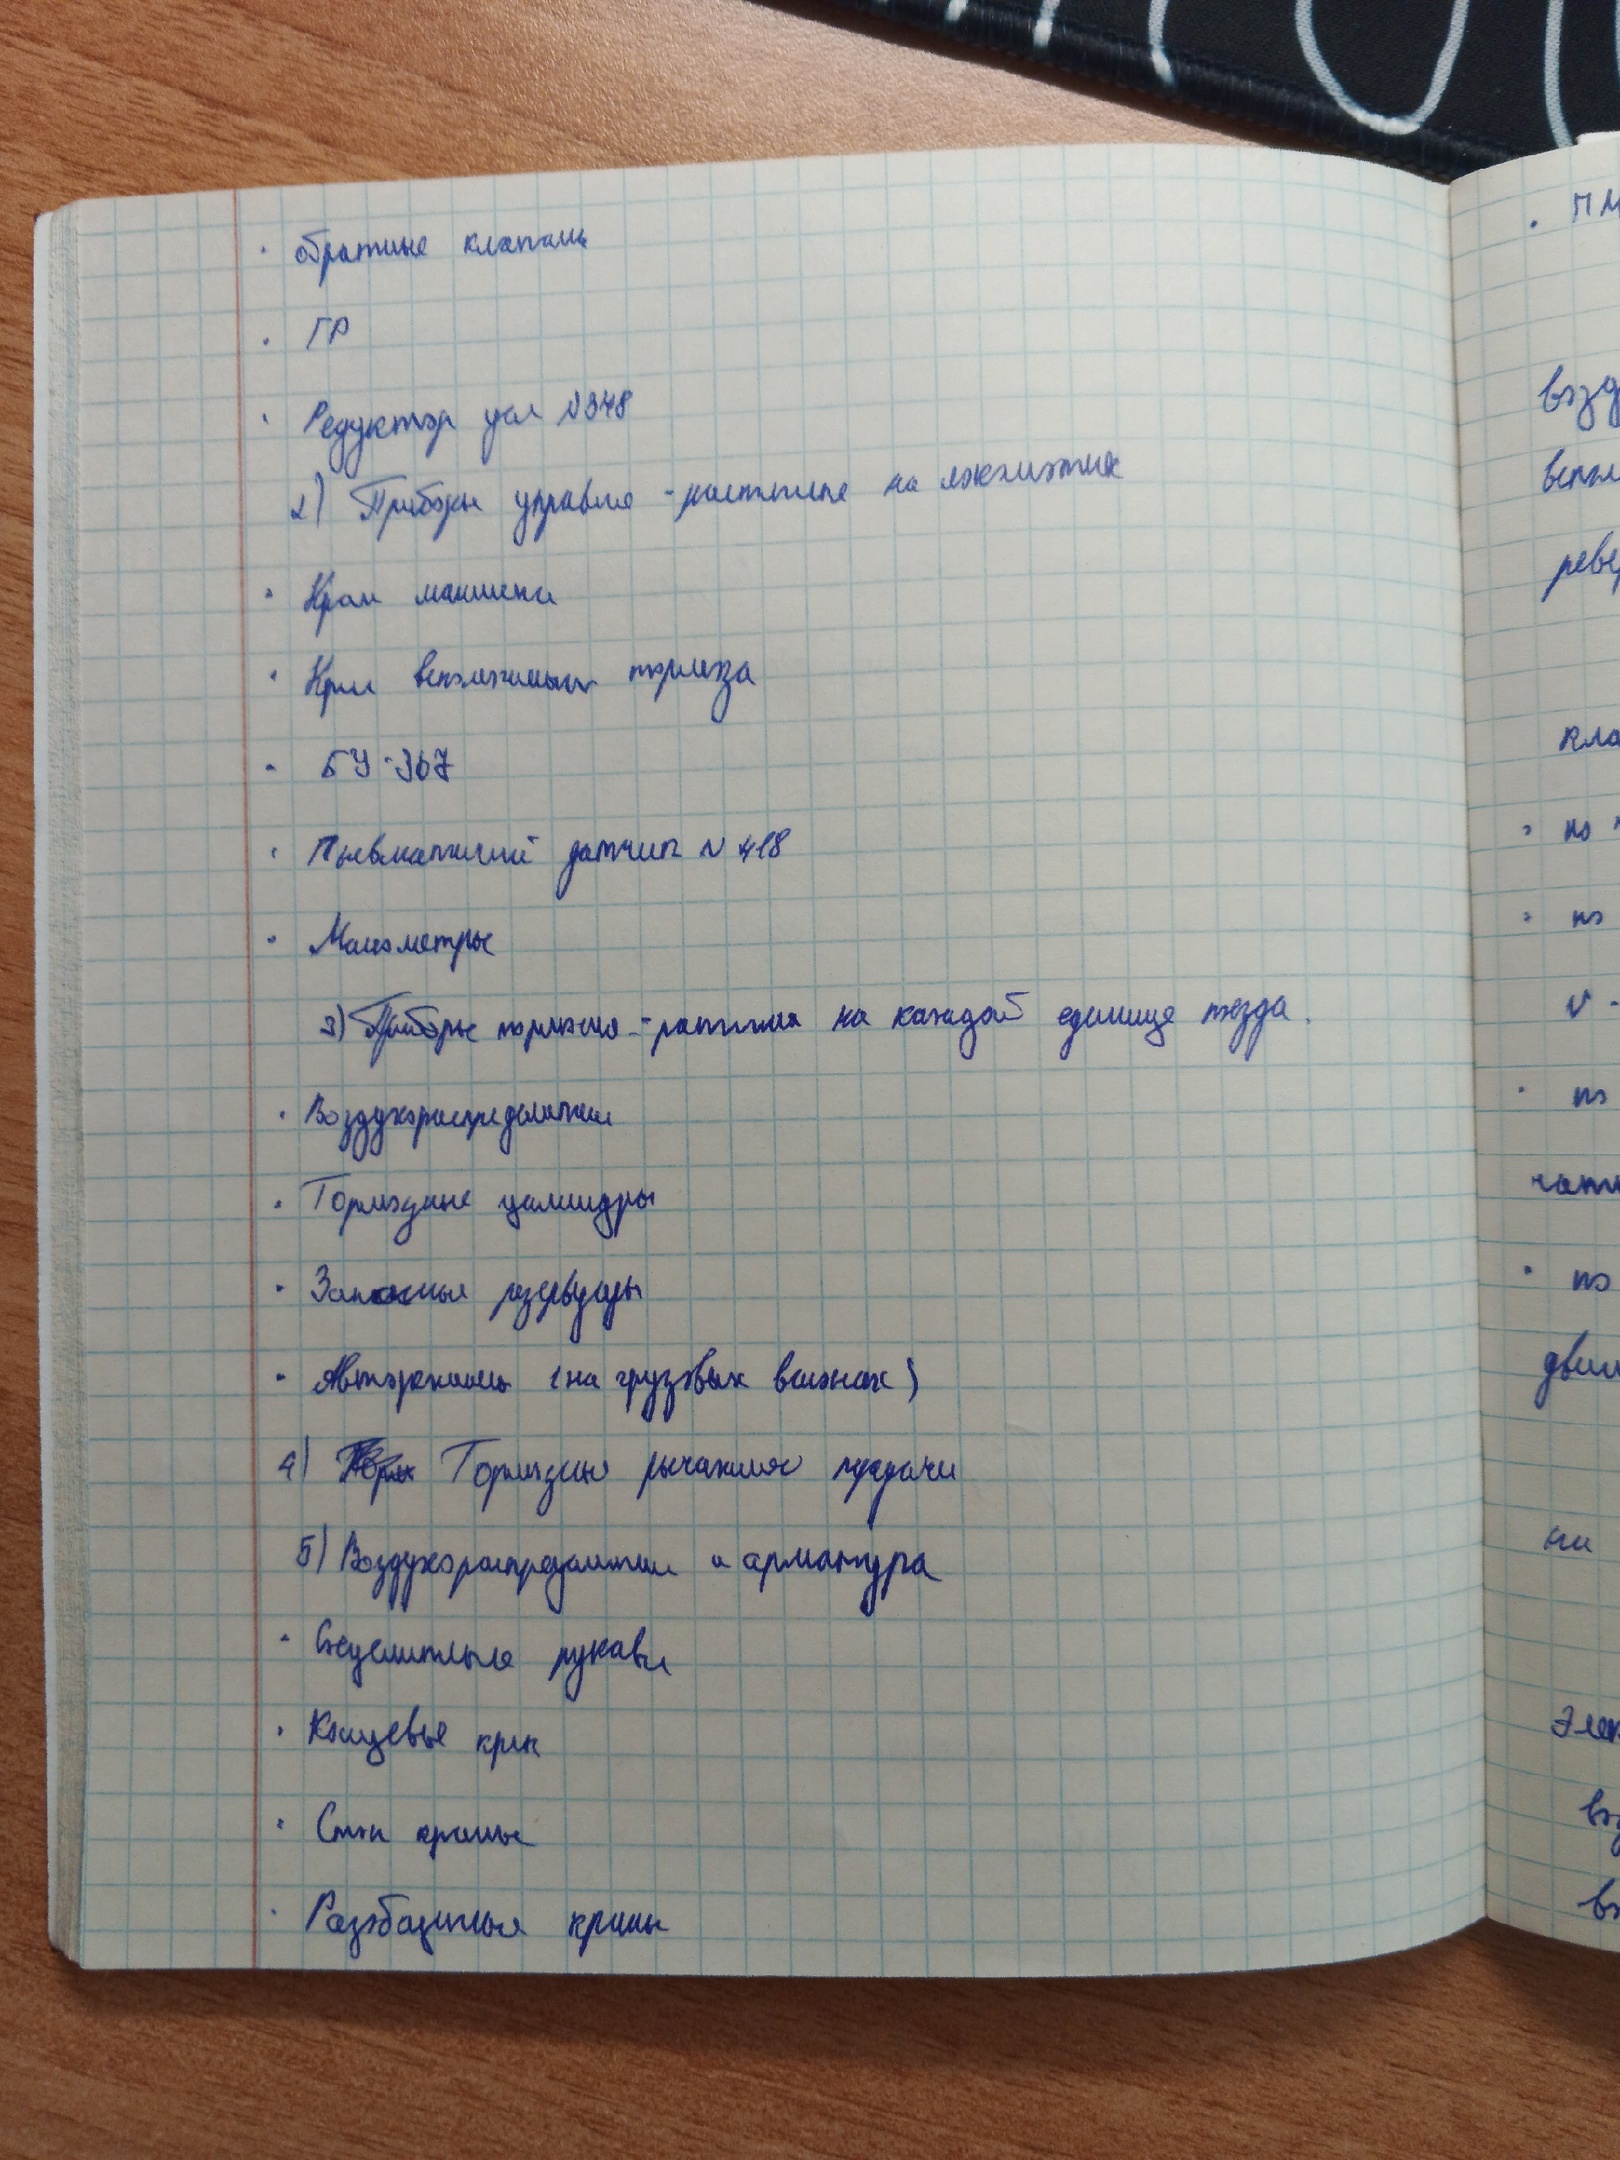 · обратные клапаны
· ГР
· Редуктор усл №348
2) Приборы управле - на локомотив
· Кран машини
· Кран вспомогательн тормоза
· БУ-367
· Пневматичий датчик № 418
· Манометры
3) Приборы торможе - на каждой единице поезда.
· Воздухораспределители
· Тормозные цилиндры
· Запасные резервуары
· Авторежимы (на грузовых вагонах)
4) Тормозные рычажные передачи
5) Воздухораспределители и арматура
· Соединительные рукава
· Концевые кран
· Стоп краны
· Разобщительные краны
· ПМ
возд
кла
· по
· по
V -
· по
· по
ни